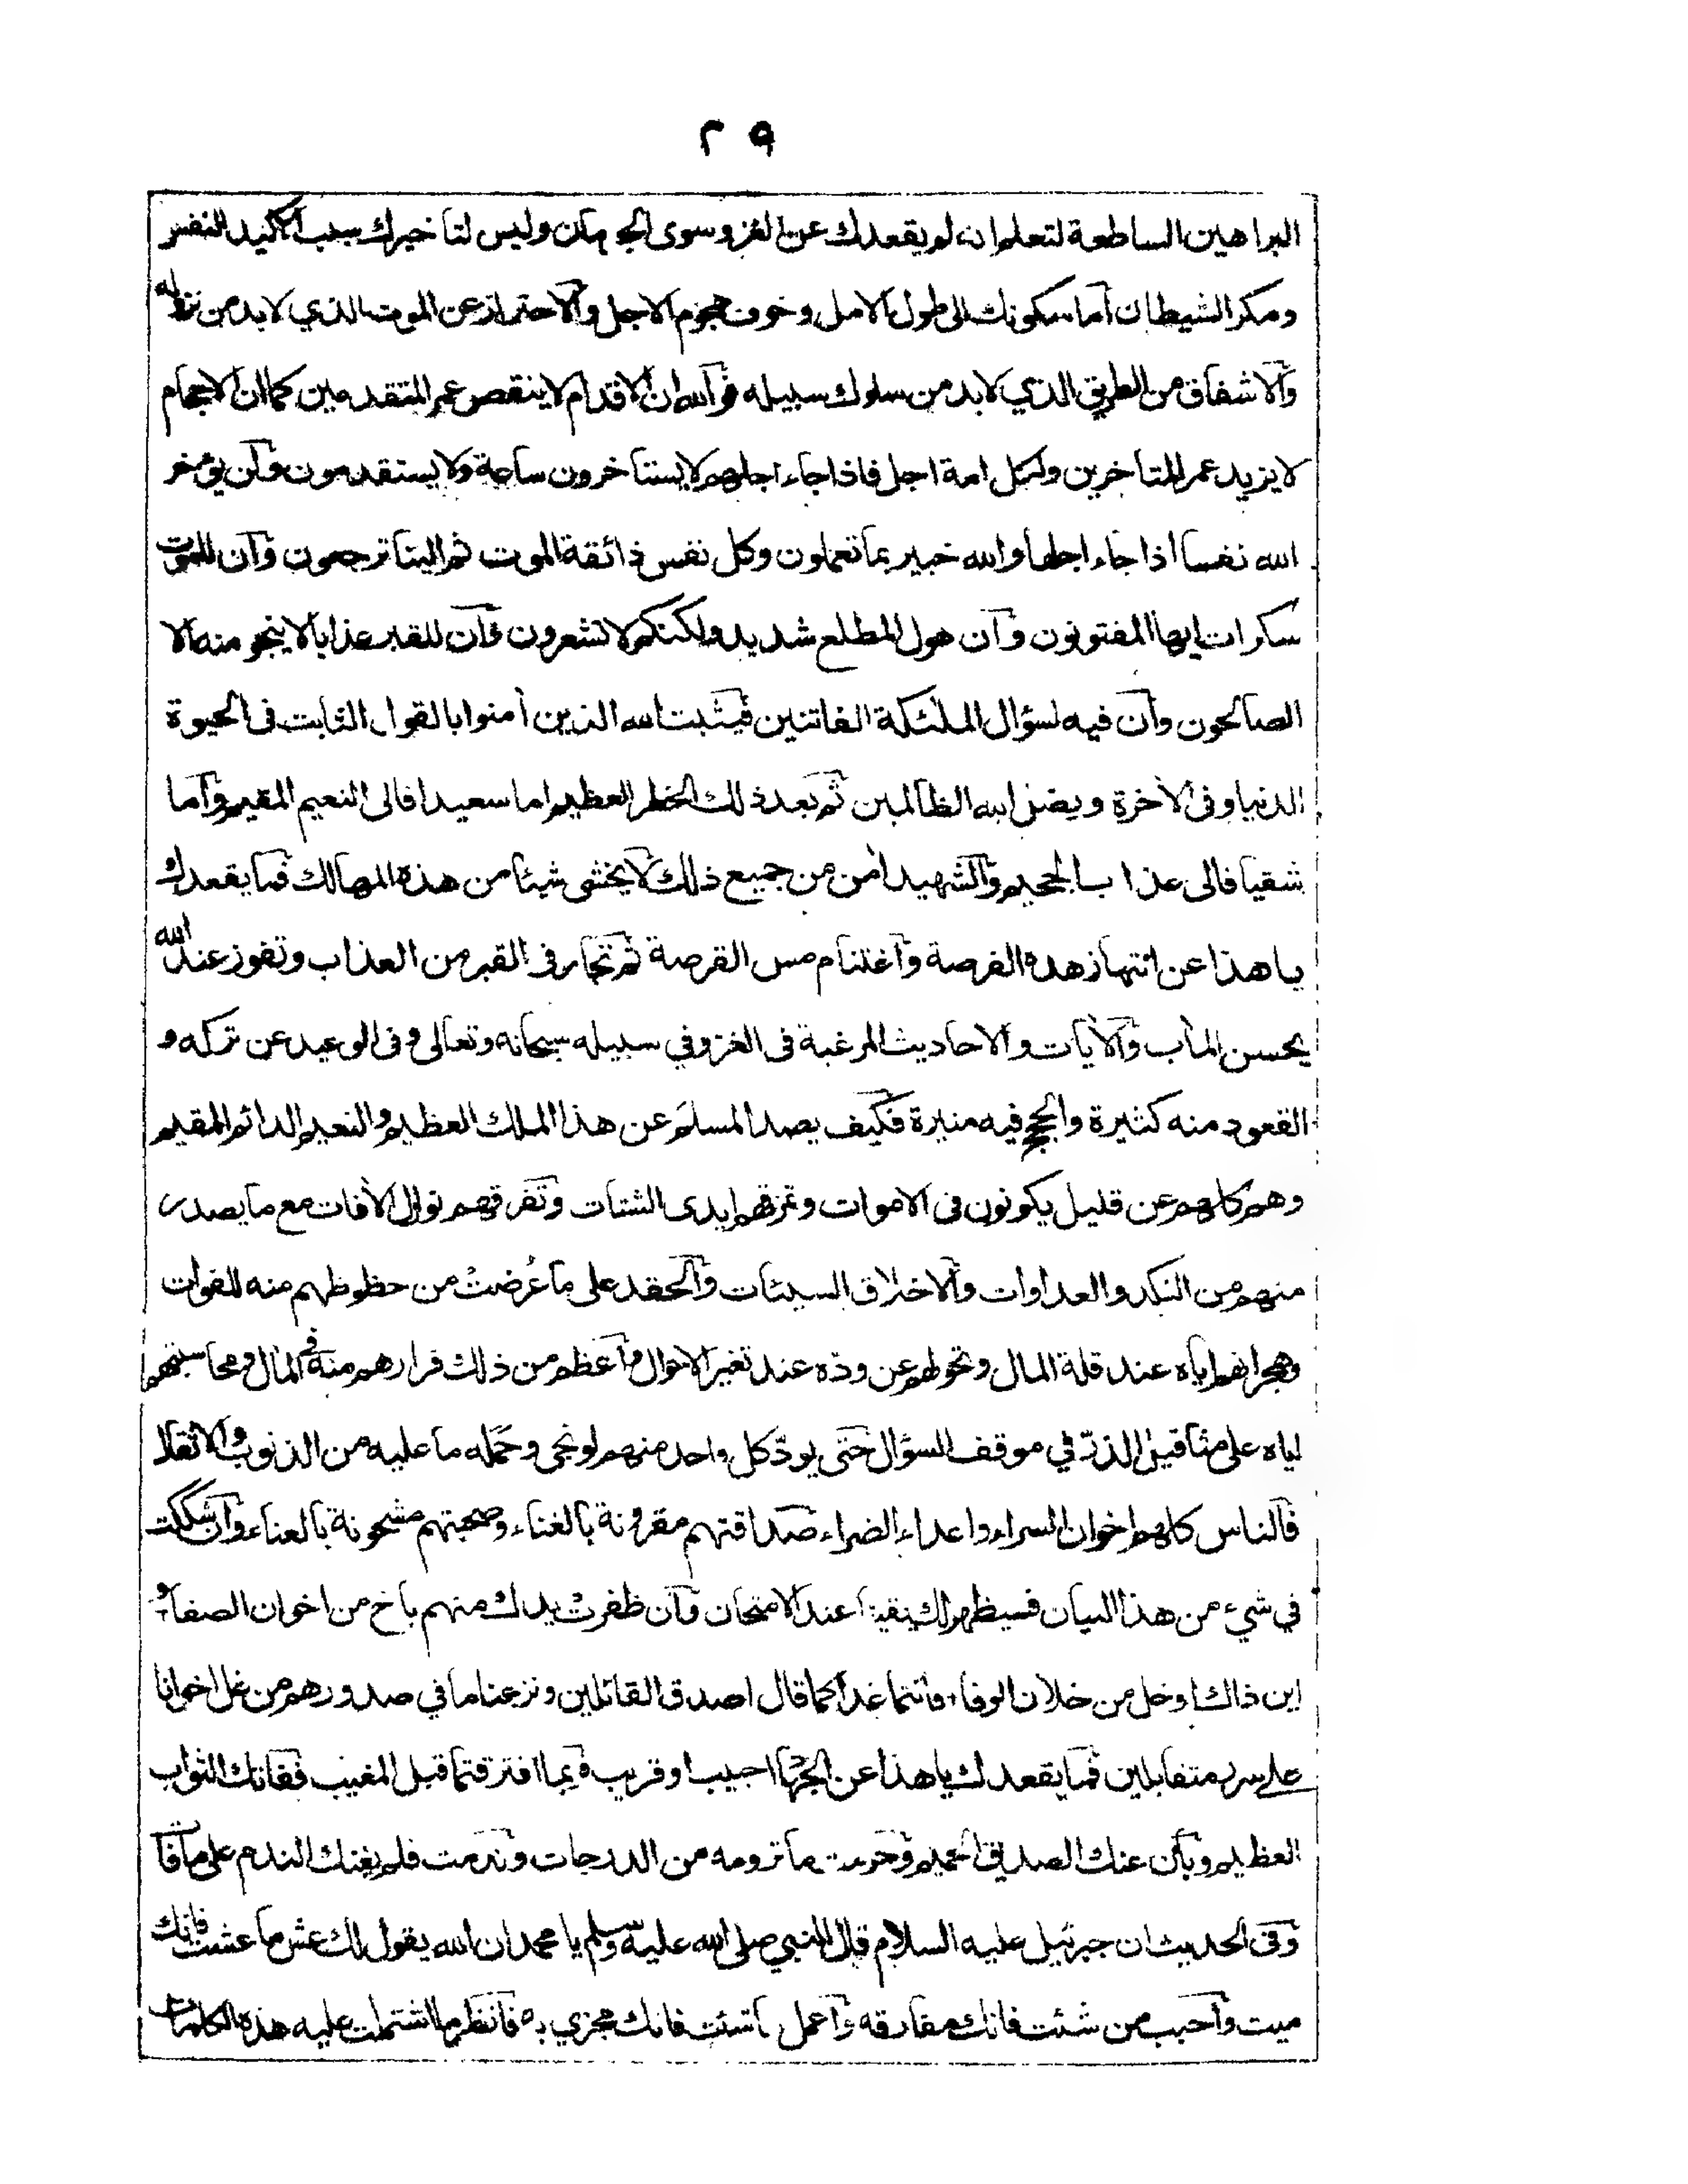 ٢٩
البراهين الساطعة لتعلم انه لم يقعدك عن الغزو سوى الحرمان وليس لتأخيرك سبب الا كيد النفس
ومكر الشيطان أما سكونك الى طول الامل وخوف هجوم الاجل والاحتراز عن الموت الذي لابد من نزوله
والاشفاق من الطريق الذي لابد من سلوك سبيله فوالله ان الاقدام لاينقص عمر المتقدمين كما ان الاحجام
لايزيد عمر المتاخرين ولكل امة اجل فاذا جاء اجلهم لايستاخرون ساعة ولا يستقدمون ولن يؤخر
الله نفسا اذا جاء اجلها والله خبير بما تعملون وكل نفس ذائقة الموت ثم الينا ترجعون وان للموت
سكرات ايها المفتونون وان هول المطلع شديد ولكنكم لاتشعرون وان للقبر عذابا لاينجو منه الا
الصالحون وان فيه لسؤال الملئكة الفاتنين فيثبت الله الذين أمنوا بالقول الثابت فى الحيوة
الدنيا وفى الأخرة ويضل الله الظالمين ثم بعد ذلك الخطر العظيم اما سعيدا فالى النعيم المقيم واما
شقيا فالى عذاب الجحيم والشهيد أمن من جميع ذلك لايخشى شيئا من هذه المهالك فما يقعدك
يا هذا عن انتهاز هذه الفرصة واغتنام مس القرصة ثم تجار فى القبر من العذاب وتفوز عند الله
بحسن المأب والأيات والاحاديث المرغبة فى الغزو في سبيله سبحانه وتعالى وفى الوعيد عن تركه و
القعود منه كثيرة والحجج فيه منيرة فكيف يصد المسلم عن هذا الملك العظيم والنعيم الدائم المقيم
وهم كلهم عن قليل يكونون فى الاموات وتمزقهم ايدى الشتات وتفرقهم نوازل الأفات مع ما يصدر
منهم من النكد والعداوات والاخلاق السيئات والحقد على ما عُرضتْ من حظوظهم منه للفوات
وهجرانهم اياه عند قلة المال وتحولهم عن وده عند تغير الاحوال واعظم من ذلك فرارهم منه في المأل ومحاسبتهم
اياه على مثاقيل الذرّ في موقف السؤال حتى يودّ كل واحد منهم لو نجى وحمله ما عليه من الذنوب والاثقال
فالناس كلهم اخوان السراء واعداء الضراء صداقتهم مقرونة بالغناء وصحبتهم مشحونة بالعناء وان شككت
في شيء من هذا البيان فسيظهر لك يقينا عند الامتحان وان ظفرت يداك منهم باخ من اخوان الصفا و
اين ذاك اوخل من خلان الوفاء فانتما غدا كما قال اصدق القائلين ونزعنا ما في صدورهم من غل اخوانا
على سرر متقابلين فما يقعدك يا هذا عن الجهاد حبيب او قريب فربما افترقتما قبل المغيب ففاتك الثواب
العظيم وبان عنك الصديق الحميم وحرمت ما ترومه من الدرجات وندمت فلم يغنك الندم على ما فات
وفى الحديث ان جبرئيل عليه السلام قال للنبي صلى الله عليه وسلم يا محمد ان الله يقول لك عش ما عشت فانك
ميت وأحبب من شئت فانك مفارقه واعمل ما شئت فانك مجزي به فانظر ما اشتملت عليه هذه الكلمات